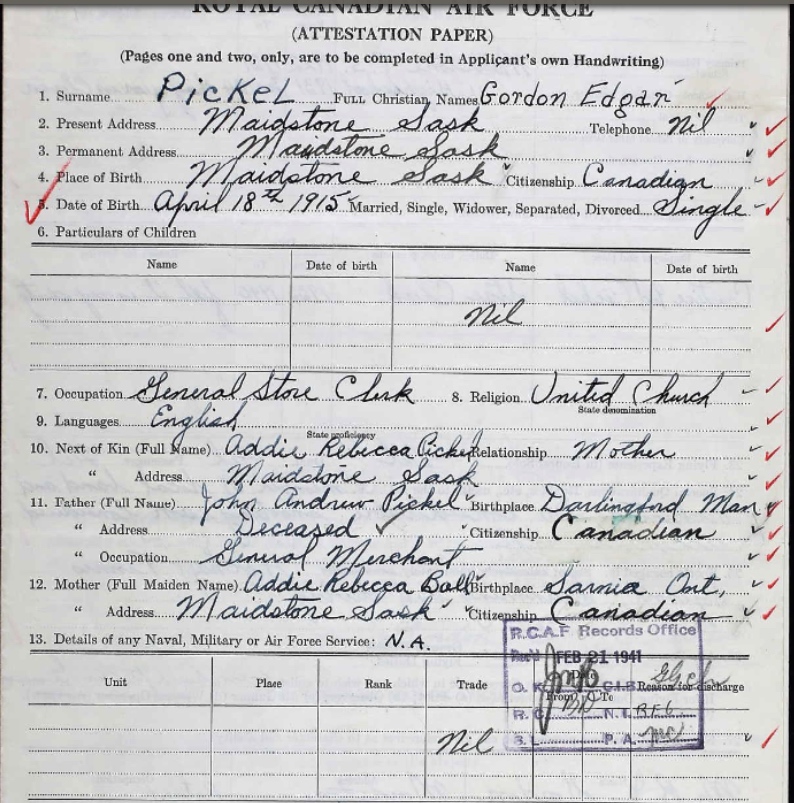 ROYAL CANADIAN AIR FORCE
(ATTESTATION PAPER)
(Pages one and two, only, are to be completed in Applicant's own Handwriting)
1. Surname PickeL Full Christian Names Gordon Edgar
2. Present Address Maidstone Sask Telephone Nil
3. Permanent Address Maidstone Sask
4. Place of Birth Maidstone Sask Citizenship Canadian
5. Date of Birth April 18th 1915 Married, Single, Widower, Separated, Divorced Single
6. Particulars of Children
Name Date of birth Name Date of birth
Nil
7. Occupation General Store Clerk 8. Religion United Church
State denomination
9. Languages English
State proficiency
10. Next of Kin (Full Name) Addie Rebecca Pickel Relationship Mother
" Address Maidstone Sask
11. Father (Full Name) John Andrew Pickel Birthplace Darlingford Man
" Address Deceased Citizenship Canadian
" Occupation General Merchant
12. Mother (Full Maiden Name) Addie Rebecca Birthplace Sarnia Ont,
" Address Maidstone Sask Citizenship Canadian
13. Details of any Naval, Military or Air Force Service: N.A.
R.C.A.F Records Office
Rec'd FEB 21 1941
Unit Place Rank Trade From To Reason for discharge
O. K. C.I.B.
R. C. N. I.
S. L. P. A.
Nil